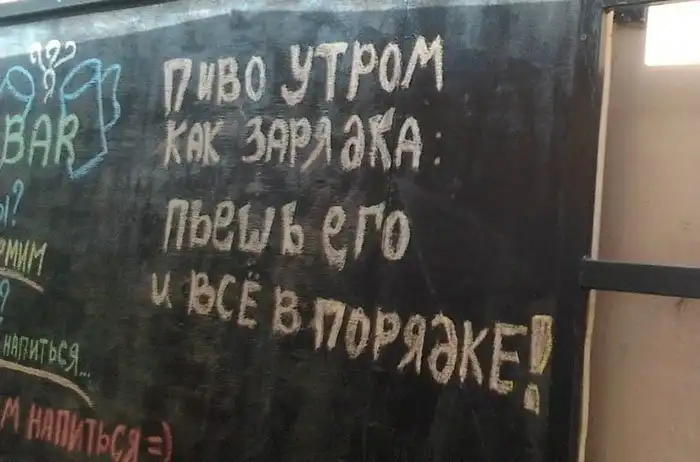 ПИВО УТРОМ
КАК ЗАРЯДКА:
ПЬЕШЬ ЕГО
И ВСЁ В ПОРЯДКЕ!
???
BAR
?
?
НАПИТЬСЯ...
НАПИТЬСЯ =)